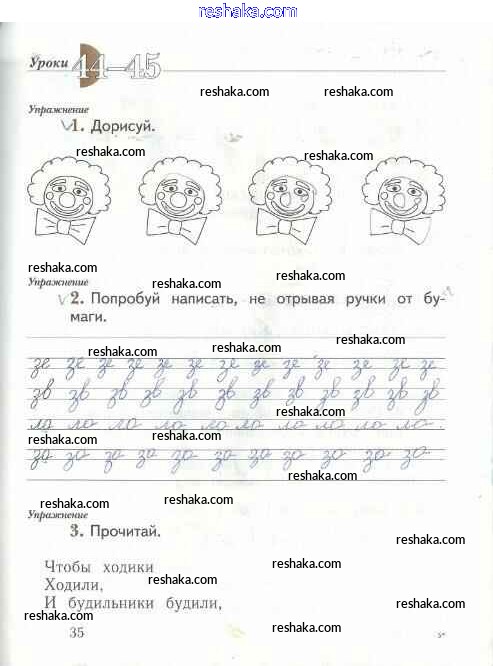 reshaka.com
Уроки 44—45
reshaka.com
reshaka.com
Упражнение
1. Дорисуй.
reshaka.com
reshaka.com
reshaka.com
reshaka.com
reshaka.com
Упражнение
2. Попробуй написать, не отрывая ручки от бу-
маги.
reshaka.com
reshaka.com
зе зе зе зе зе зе зе зе зе зе зе зе
reshaka.com
зв зв зв зв зв зв зв зв зв зв зв зв
ло ло ло ло ло ло ло ло ло ло ло
reshaka.com
reshaka.com
за за за за за за за за за за за
reshaka.com
reshaka.com
Упражнение
3. Прочитай.
reshaka.com
Чтобы ходики
reshaka.com
Ходили,
reshaka.com
И будильники будили,
reshaka.com
reshaka.com
35
reshaka.com